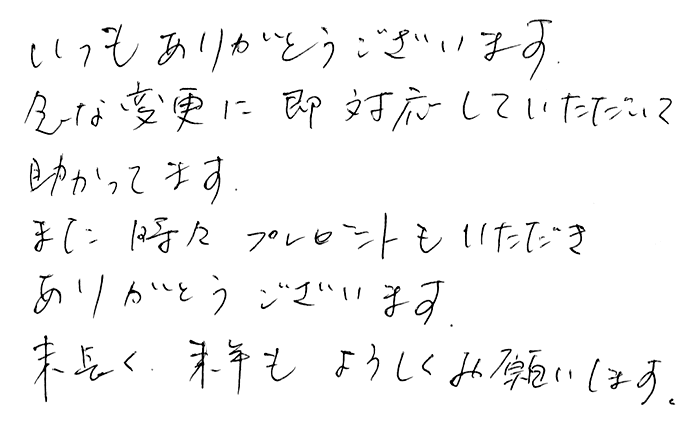 いつもありがとうございます.
急な変更に即対応していただいて
助かってます.
また時々プレゼントもいただき
ありがとうございます.
末長く.来年もようしくお願いします。